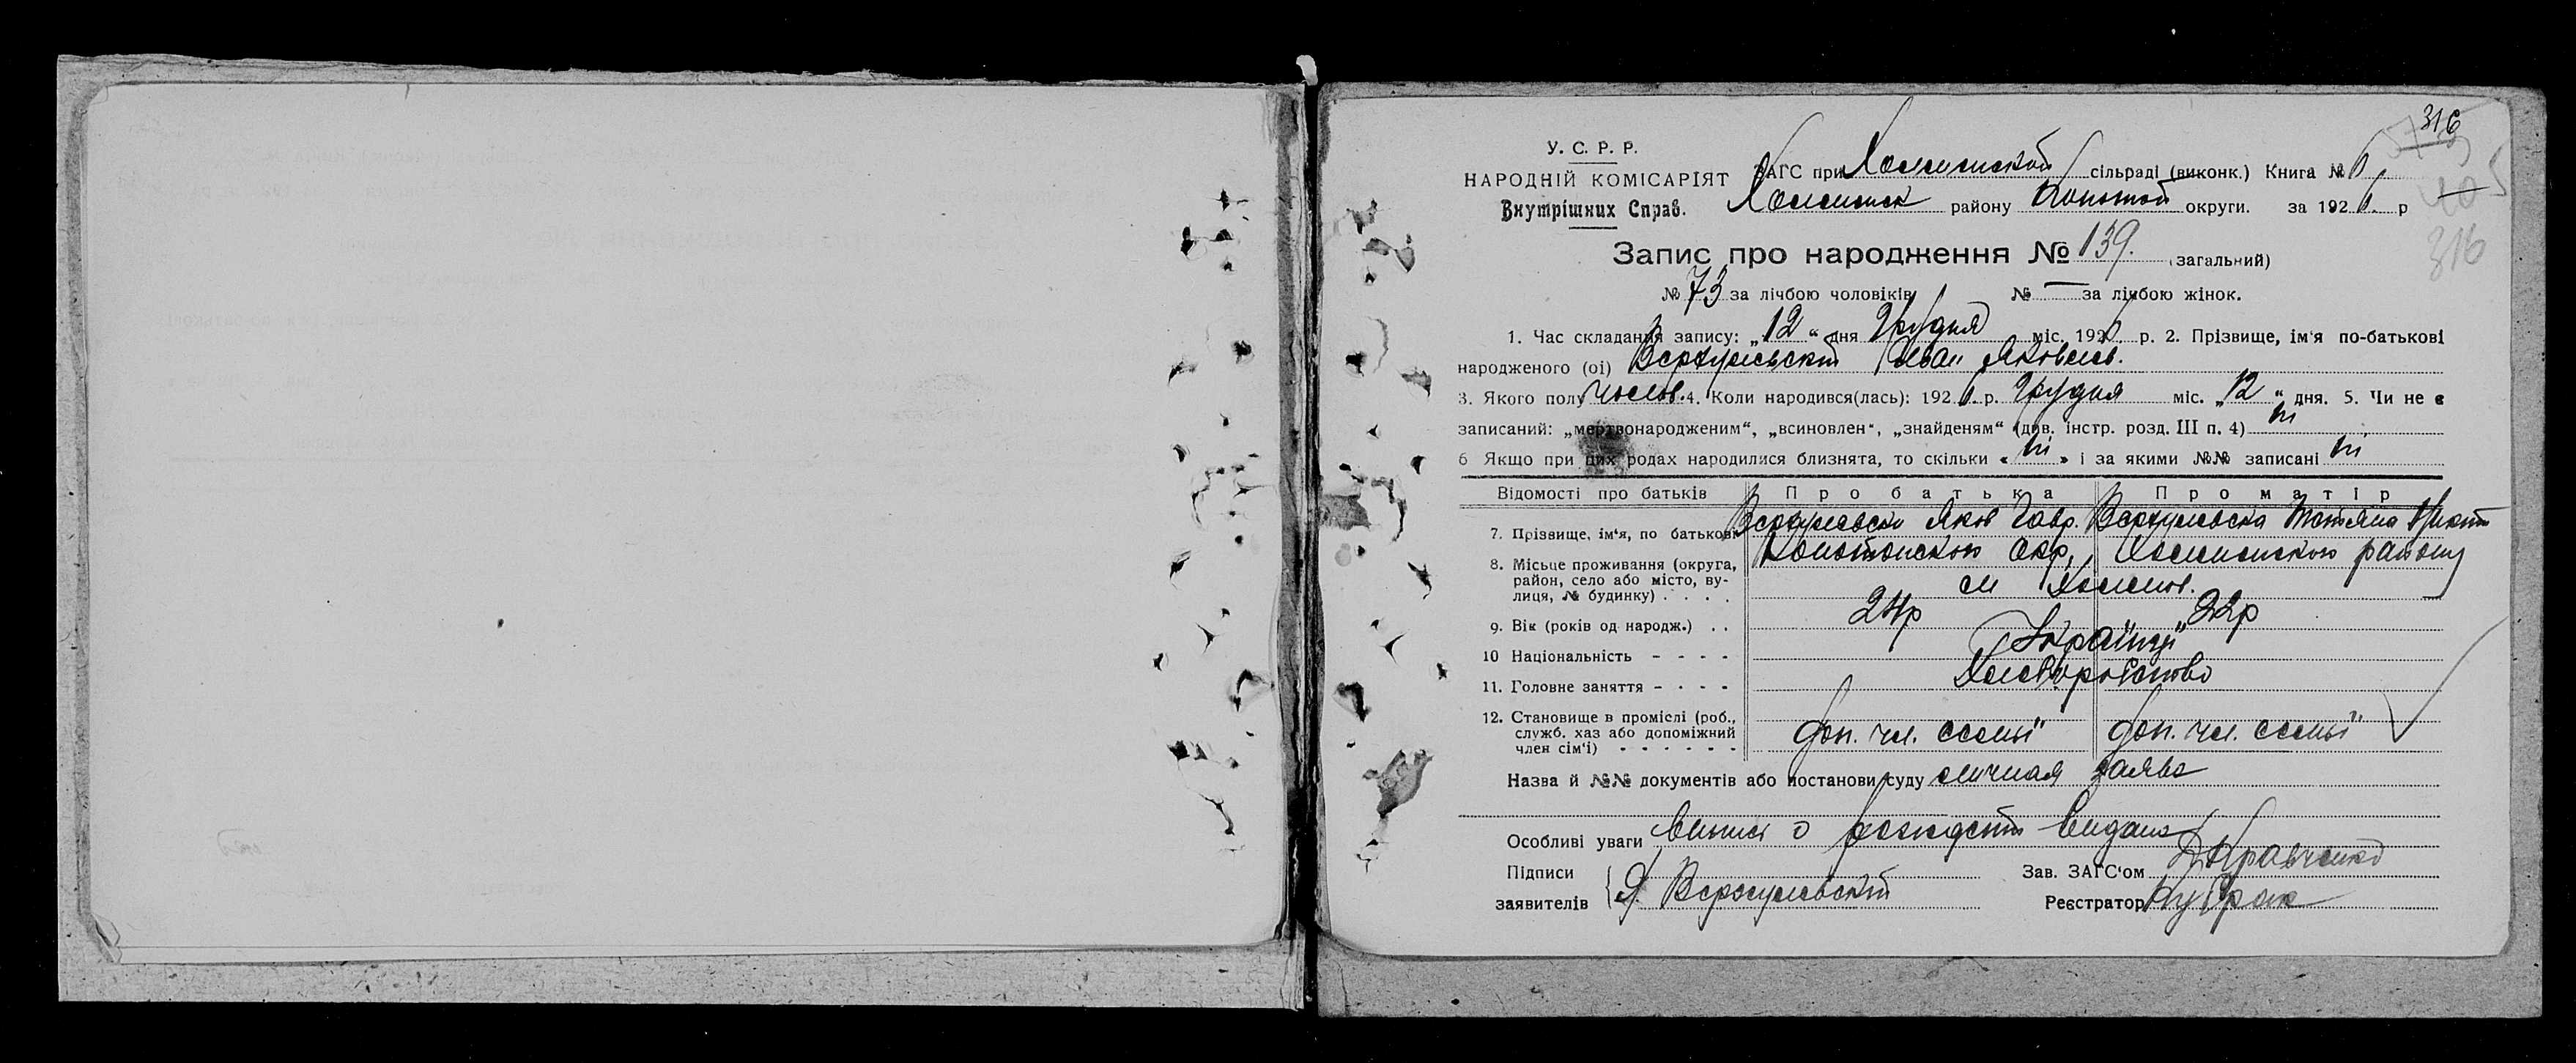 316
У. С. Р. Р.
НАРОДНІЙ КОМІСАРІЯТ
Внутрішних Справ.
ЗАГС при сільраді (виконк.) Книга №
району округи. за 1926 р
316
Запис про народження № 139. (загальний)
№ 73 за лічбою чоловіків № — за лічбою жінок.
1. Час складання запису: „12“ дня Грудня міс. 192 р. 2. Прізвище, ім'я по-батькові
народженого (ої) Иван Яковлев.
3. Якого полу 4. Коли народився(лась): 1926 р. Грудня міс. „12“ дня. 5. Чи не є
записаний: „мертвонародженим“, „всиновлен“, „знайденям“ (див. інстр. розд. III п. 4) ні
6 Якщо при цих родах народилися близнята, то скільки « ні » і за якими №№ записані ні
Відомості про батьків Про батька Про матір
7. Прізвище, ім'я, по батькові Яков Гавр. Татяна Никит
8. Місьце проживання (округа, район, село або місто, вулиця, № будинку) . . . . Конотопскою Окр, району
9. Вік (років од народж.) . . 24р 22р
10 Національність - - - - Українці
11. Головне заняття - - - - Хлеборобство
12. Становище в промислі (роб., служб. хаз або допоміжний член сім'ї) - - - - - - доп. чл. семьї доп. чл. семьї
Назва й №№ документів або постанови суду личная заява
Особливі уваги випись о видана
Підписи
заявителів Я.
Зав. ЗАГС'ом Кравченко
Реєстратор